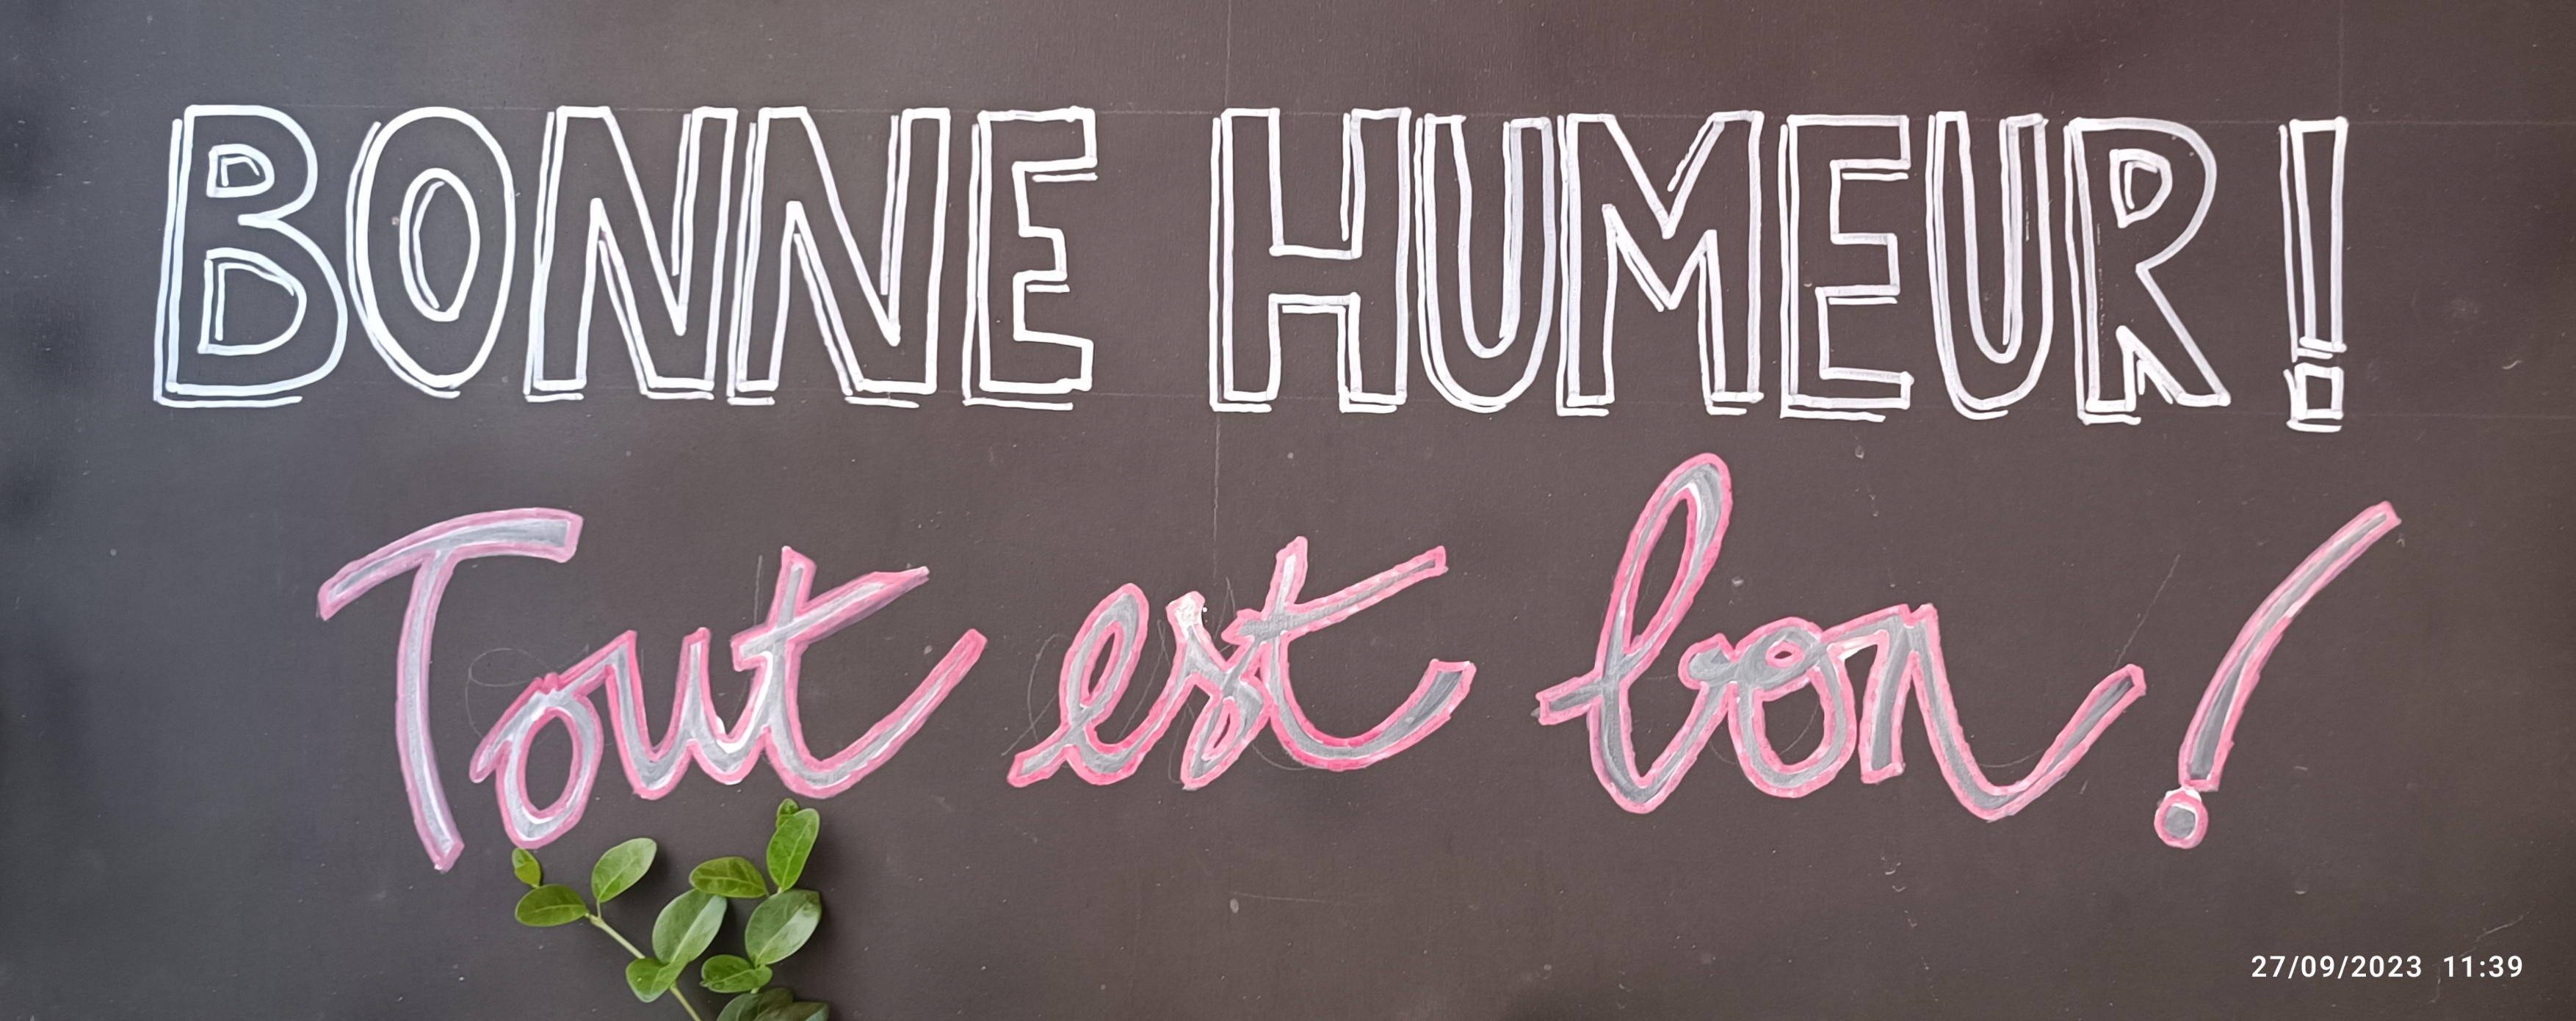 BONNE HUMEUR !
Tout est bon !
27/09/2023 11:39